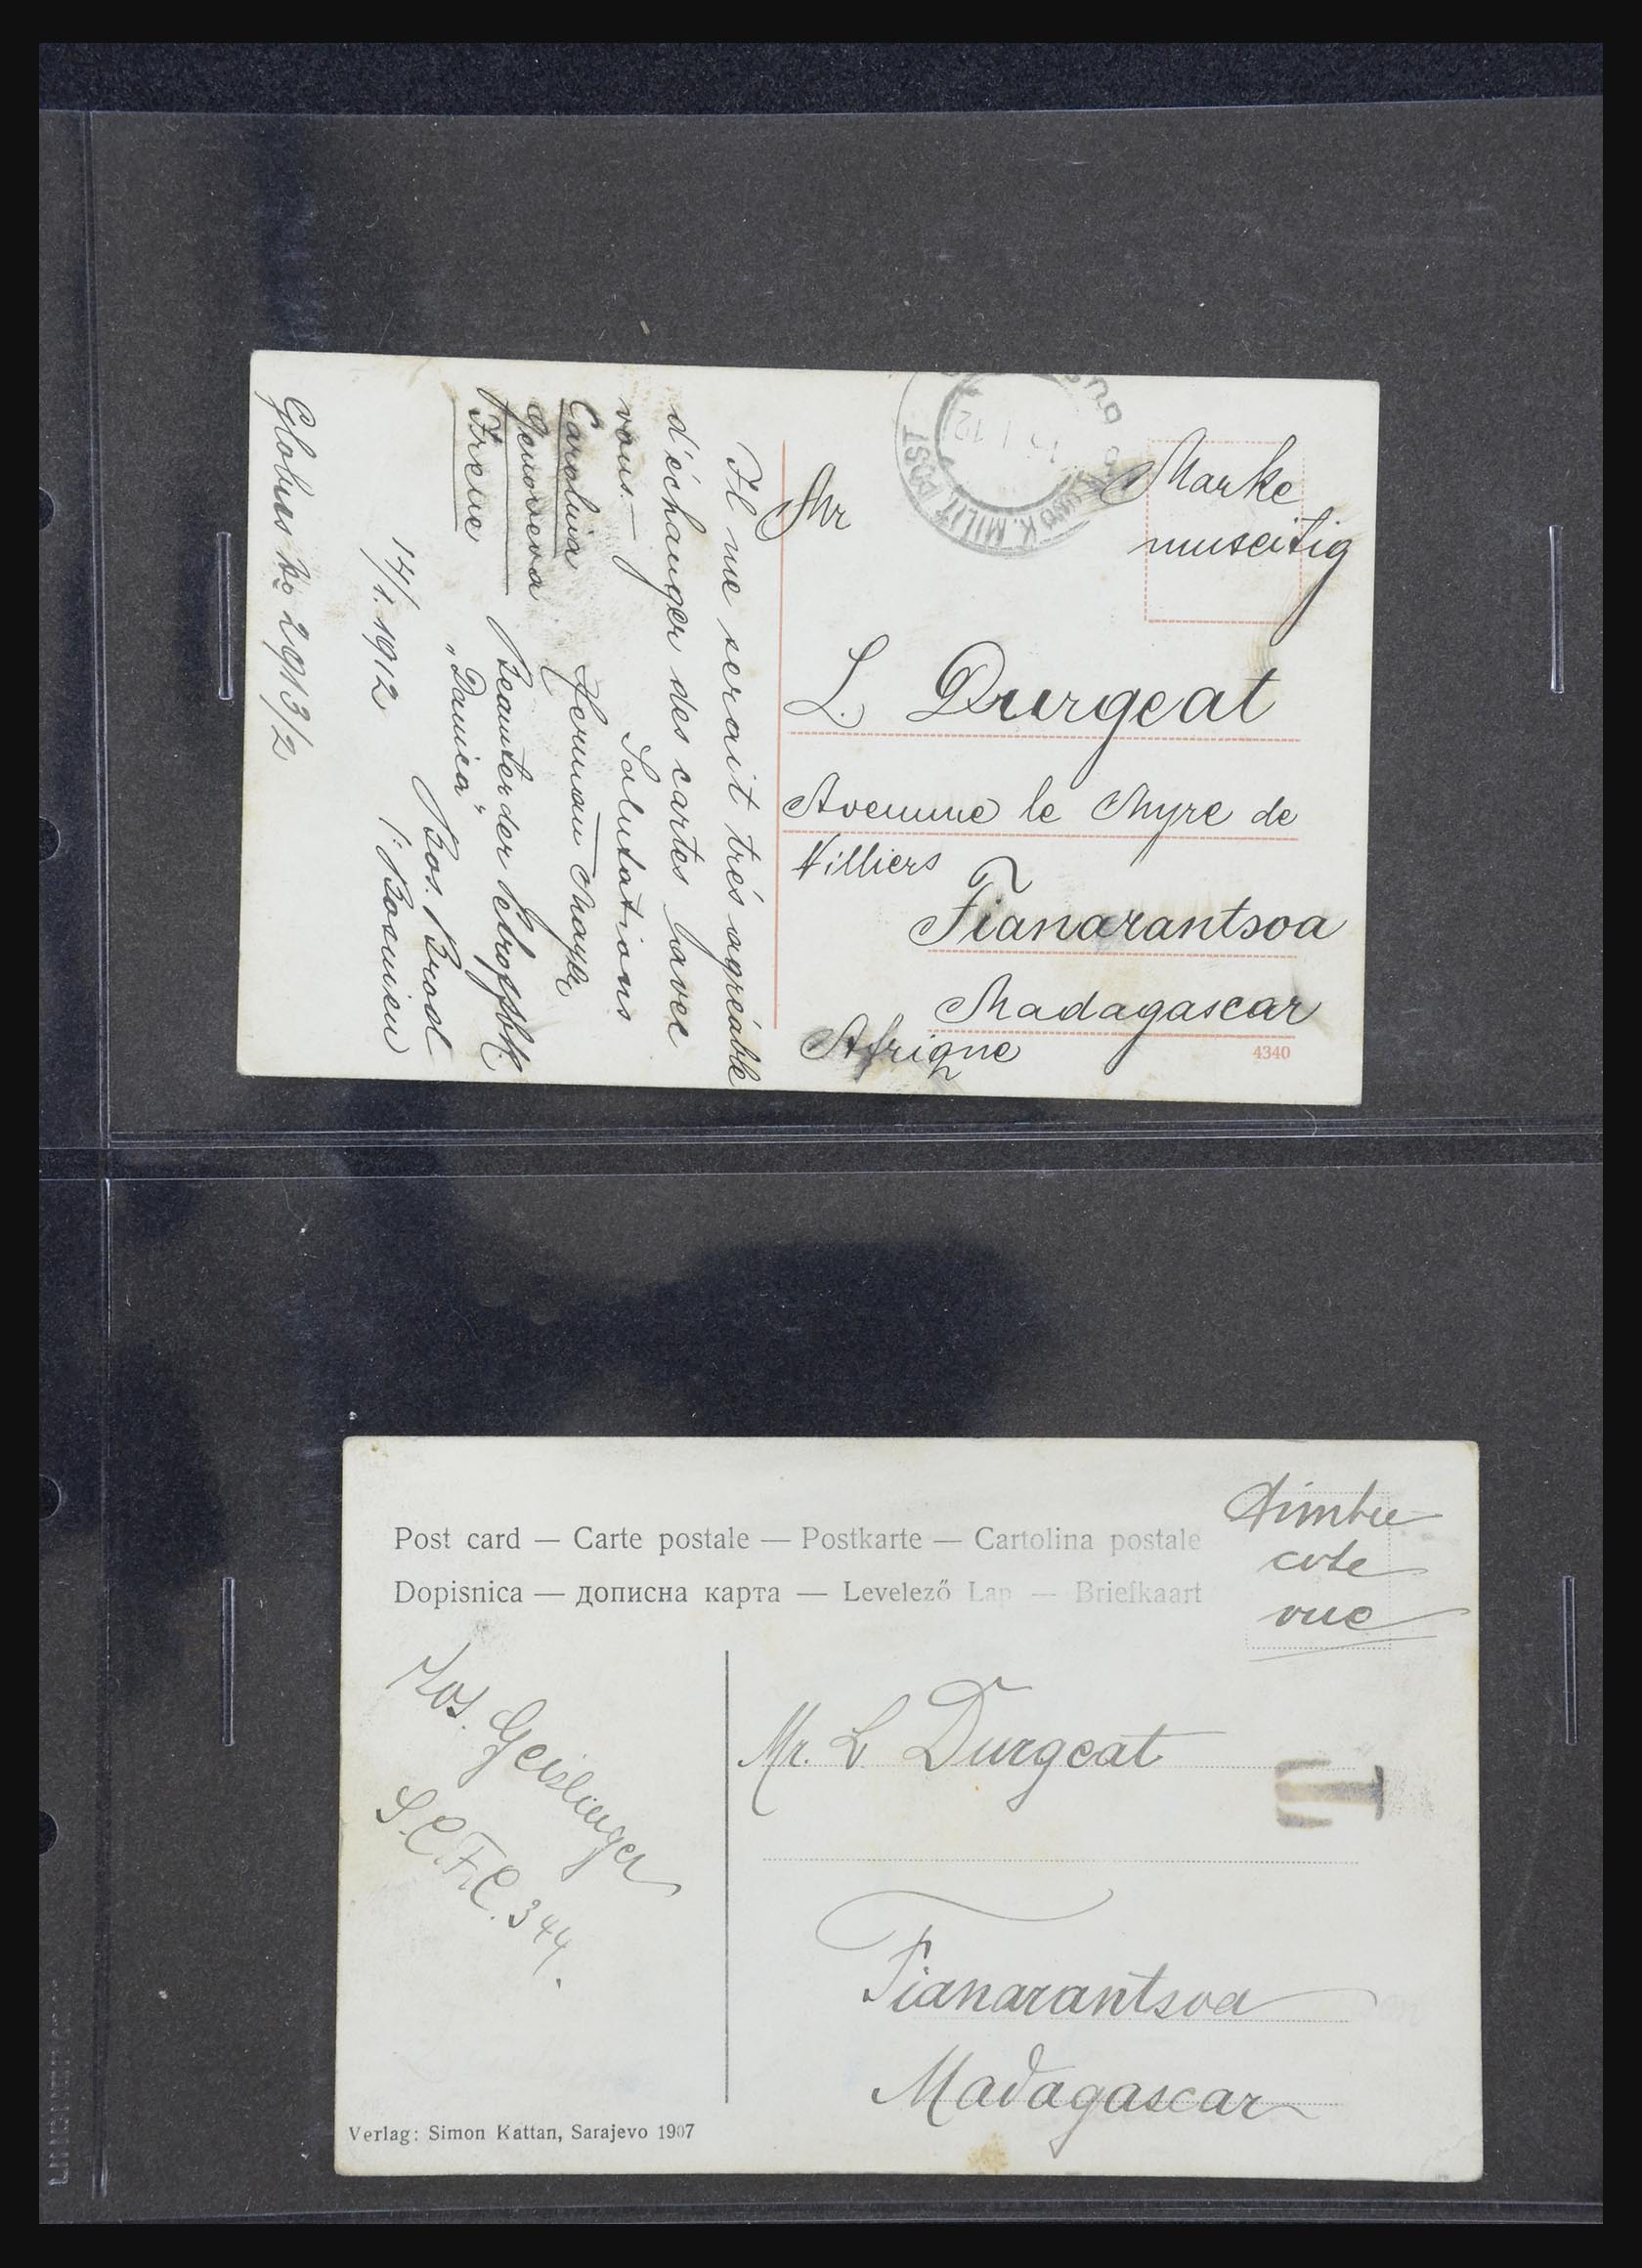 Marke
umseitig
K.UND K. MILIT. POST
Mr
L. Durgeat
Avenune le Myre de
Villiers
Fianarantsoa
Madagascar
Afrique
4340
Il me serait trés agréable
d'échanger des cartes avec
vous. —
Salutations
Carolina
Genoveva
Irene
Herman Mayer
Beamter der
"Danica"
Bos. Brod
Bosnien
14/1. 1912
Globus No 2913/2
Post card — Carte postale — Postkarte — Cartolina postale
Dopisnica — дописна карта — Levelező Lap — Briefkaart
timbre
cote
vue
Jos. Geislinger
344.
Mr. L Durgeat
T
Fianarantsoa
Madagascar
Verlag: Simon Kattan, Sarajevo 1907